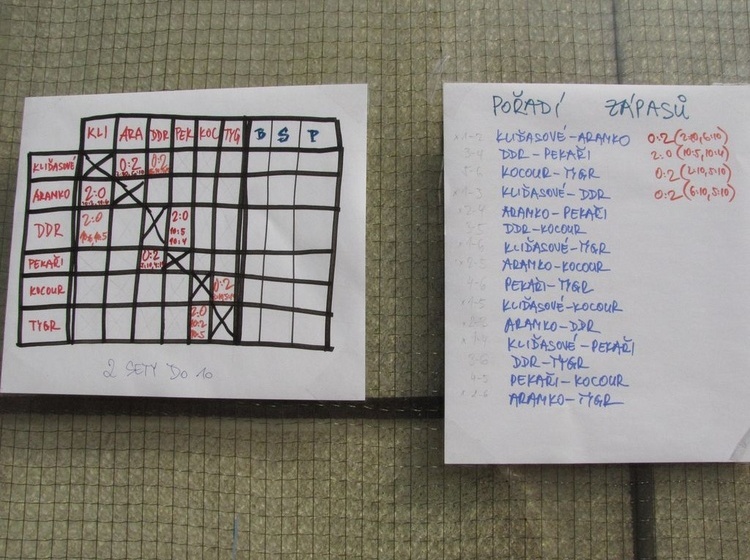 KLI ARA DDR PEK KOC TYG B S P
KLIĎASOVÉ 0:2 0:2
ARANKO 2:0
DDR 2:0 2:0
10:5
10:4
PEKAŘI 0:2
KOCOUR 0:2
TYGR 2:0
10:2
10:5
2 SETY DO 10
POŘADÍ ZÁPASŮ
KLIĎASOVÉ-ARANKO 0:2 (2:10, 6:10)
DDR-PEKAŘI 2:0 (10:5, 10:4)
KOCOUR-TYGR 0:2 (2:10, 5:10)
KLIĎASOVÉ-DDR 0:2 (6:10, 5:10)
ARANKO-PEKAŘI
DDR-KOCOUR
KLIĎASOVÉ-TYGR
ARANKO-KOCOUR
PEKAŘI-TYGR
KLIĎASOVÉ-KOCOUR
ARANKO-DDR
KLIĎASOVÉ-PEKAŘI
DDR-TYGR
PEKAŘI-KOCOUR
ARANKO-TYGR